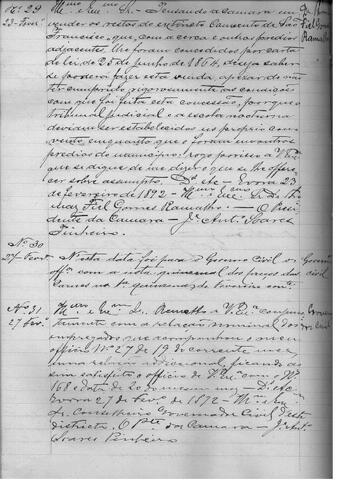 Nº 29
23 Fev.
Illmo e Exmo Sr. Desejando a Camara
vender os restos do extincto Convento de São
Francisco, que, com a cerca e outros predios
adjacentes, lhe foram concedidos por carta
de lei de 25 de junho de 1864, deseja saber
se poderá fazer esta venda, apesar de não
ter cumprido rigorosamente as condições
com que foi feita esta concessão, porque o
tribunal judicial e a escola nocturna
deviam ser estabelecidos no proprio con
vento, enquanto que o foram em outros
predios do municipio: rogo por isso a V. Exa
que se digne de me dizer o que se lhe offere
cer sobre assumpto. Ds. etc. Evora 23
de fevereiro de 1872
Fiel Gomes Ramalho O Presi
dente da Camara Je. Ant. Soares
Pinheiro.
Nº 30
27 Fever.
Nesta data foi para o Governo Civil
offo com a nota quinzenal dos preços das
carnes na 1ª quinzena de fevereiro
Governo
civil
Nº 31
27 Fev.
Illmo e Exmo Sr. Remetto a V. Exa
juncta com a relação nominal dos
empregados que acompanhou o meu
officio nº 27 de 19 do corrente mez,
uma relação addicional, ficando as
sim satisfeito o officio de V. Exa com o Nº
168 e data de 20 do mesmo mez Ds. etc.
Evora 27 de Fevo de 1872
Sr. Conselheiro Governador Civil deste
districto. O Pte da Camara Je. Anto
Soares Pinheiro